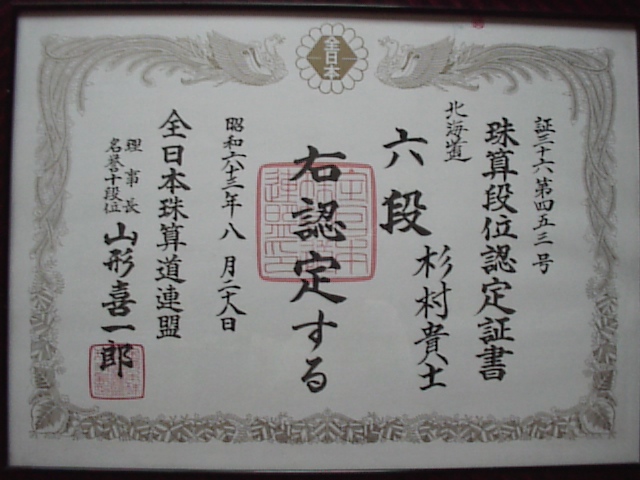 全日本
証三十六第四五三号
珠算段位認定証書
北海道
杉村貴士
六段
右認定する
昭和六十三年八月二十八日
全日本珠算道連盟
理事長
名誉十段位
山形喜一郎